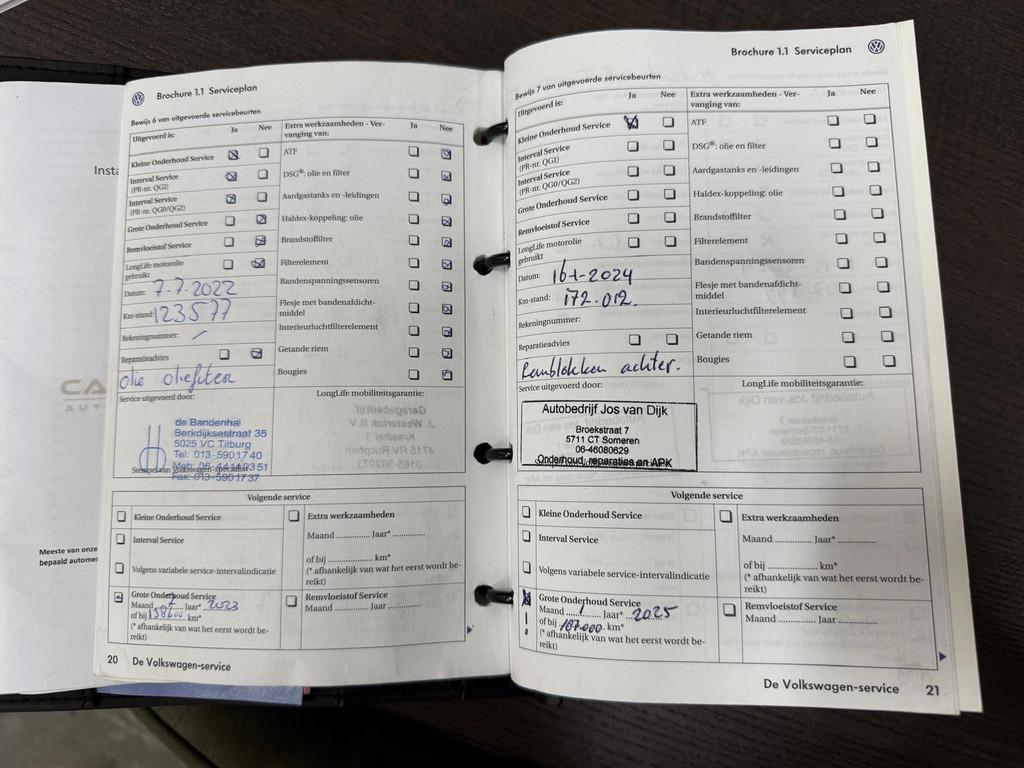 Insta
CA
AUT
Meeste van onze
bepaald automer
Brochure 1.1 Serviceplan
Bewijs 6 van uitgevoerde servicebeurten
Uitgevoerd is:
Ja
Nee
Extra werkzaamheden - Ver-
vanging van:
Ja
Nee
Kleine Onderhoud Service
ATF
Interval Service
(PR-nr. QG1)
DSG®: olie en filter
Interval Service
(PR-nr. QG0/QG2)
Aardgastanks en -leidingen
Grote Onderhoud Service
Haldex-koppeling: olie
Remvloeistof Service
Brandstoffilter
LongLife motorolie
gebruikt
Filterelement
Datum: 7-7-2022
Bandenspanningssensoren
Km-stand: 123577
Flesje met bandenafdicht-
middel
Rekeningnummer: /
Interieurluchtfilterelement
Reparatieadvies
Getande riem
olie oliefilter
Bougies
Service uitgevoerd door:
LongLife mobiliteitsgarantie:
de Bandenhal
Berkdijksestraat 35
5025 VC Tilburg
Tel: 013-5901740
Mob: 06-44149351
Fax: 013-5901737
Stempel van Volkswagen-specialist
Volgende service
Kleine Onderhoud Service
Extra werkzaamheden
Maand ............ Jaar* ............
Interval Service
of bij ................ km*
(* afhankelijk van wat het eerst wordt be-
reikt)
Volgens variabele service-intervalindicatie
Grote Onderhoud Service
Maand 7 Jaar* 2023
of bij 158600 km*
(* afhankelijk van wat het eerst wordt be-
reikt)
Remvloeistof Service
Maand ............ Jaar ............
20 De Volkswagen-service
Brochure 1.1 Serviceplan
Bewijs 7 van uitgevoerde servicebeurten
Uitgevoerd is:
Ja
Nee
Extra werkzaamheden - Ver-
vanging van:
Ja
Nee
Kleine Onderhoud Service
ATF
Interval Service
(PR-nr. QG1)
DSG®: olie en filter
Interval Service
(PR-nr. QG0/QG2)
Aardgastanks en -leidingen
Grote Onderhoud Service
Haldex-koppeling: olie
Remvloeistof Service
Brandstoffilter
LongLife motorolie
gebruikt
Filterelement
Datum: 16-1-2024
Bandenspanningssensoren
Km-stand: 172.012.
Flesje met bandenafdicht-
middel
Rekeningnummer:
Interieurluchtfilterelement
Reparatieadvies
Getande riem
Remblokken achter.
Bougies
Service uitgevoerd door:
LongLife mobiliteitsgarantie:
Autobedrijf Jos van Dijk
Broekstraat 7
5711 CT Someren
06-46080629
Onderhoud, reparaties en APK
Volgende service
Kleine Onderhoud Service
Extra werkzaamheden
Maand ............ Jaar* ............
Interval Service
of bij ................ km*
(* afhankelijk van wat het eerst wordt be-
reikt)
Volgens variabele service-intervalindicatie
Grote Onderhoud Service
Maand 1 Jaar* 2025
of bij 187.000 km*
(* afhankelijk van wat het eerst wordt be-
reikt)
Remvloeistof Service
Maand ............ Jaar ............
De Volkswagen-service 21